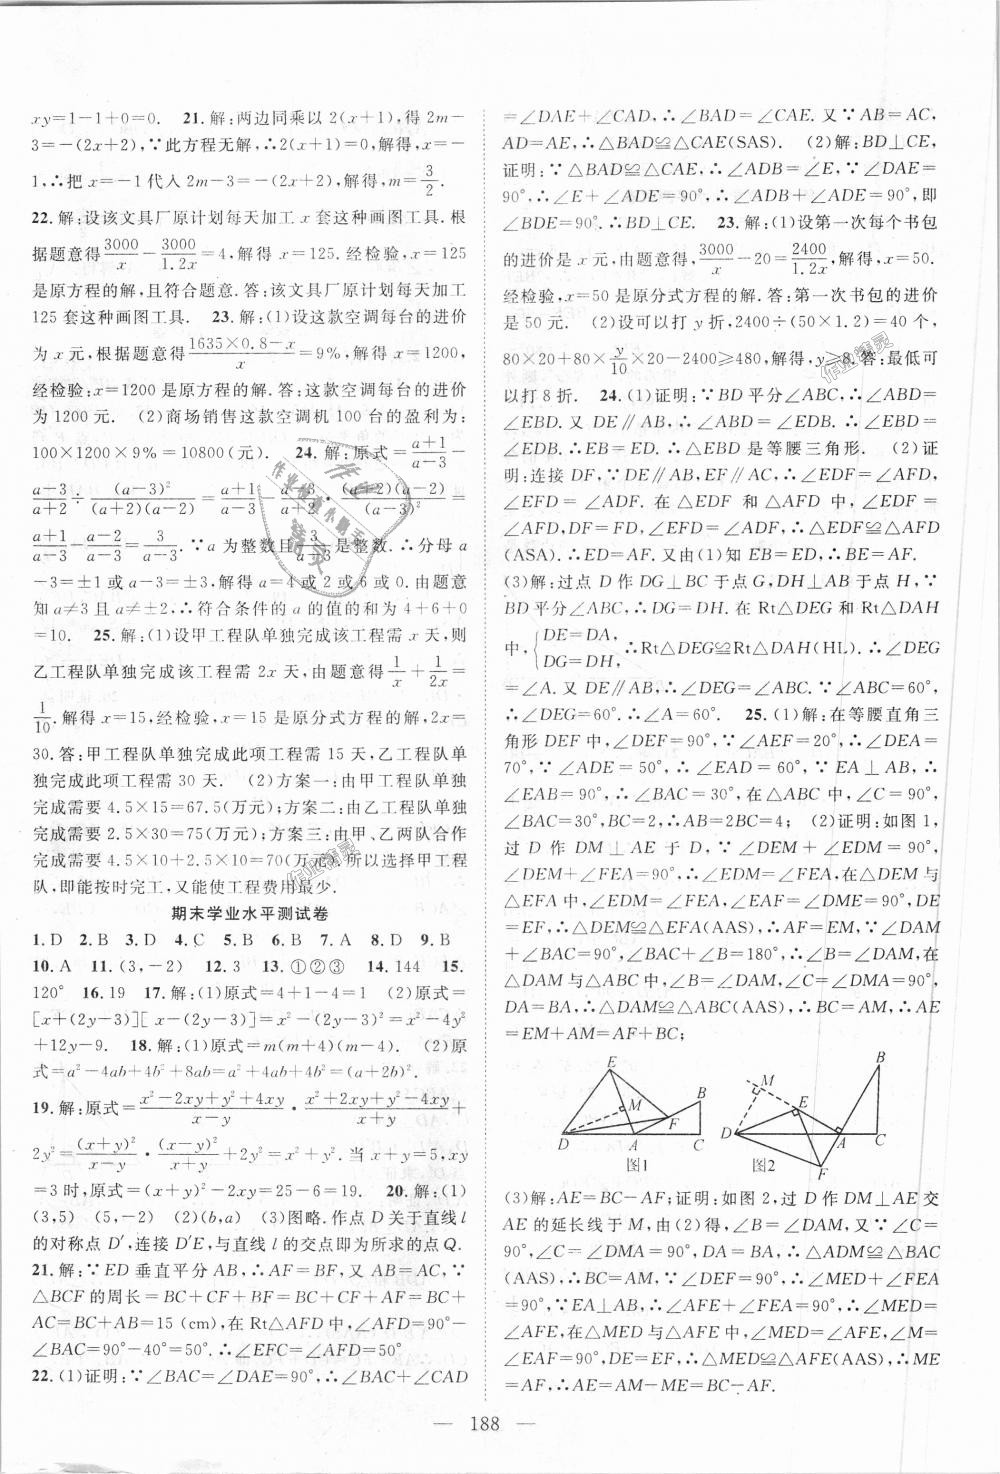 xy=1-1+0=0.  21.解:两边同乘以2(x+1),得2m-
3=-(2x+2),∵此方程无解,∴2(x+1)=0,解得,x=-
1,∴把x=-1代入2m-3=-(2x+2),解得,m=3/2.
22.解:设该文具厂原计划每天加工x套这种画图工具.根
据题意得3000/x-3000/1.2x=4,解得x=125.经检验,x=125
是原方程的解,且符合题意.答:该文具厂原计划每天加工
125套这种画图工具.  23.解:(1)设这款空调每台的进价
为x元,根据题意得(1635×0.8-x)/x=9%,解得x=1200,
经检验:x=1200是原方程的解.答:这款空调每台的进价
为1200元.  (2)商场销售这款空调机100台的盈利为:
100×1200×9%=10800(元).  24.解:原式=(a+1)/(a-3)-
(a-3)/(a+2)÷(a-3)²/((a+2)(a-2))=(a+1)/(a-3)-(a-3)/(a+2)·((a+2)(a-2))/(a-3)²=
(a+1)/(a-3)-(a-2)/(a-3)=3/(a-3).∵a为整数且3/(a-3)是整数.∴分母a
-3=±1或a-3=±3,解得a=4或2或6或0.由题意
知a≠3且a≠±2,∴符合条件的a的值的和为4+6+0
=10.  25.解:(1)设甲工程队单独完成该工程需x天,则
乙工程队单独完成该工程需2x天,由题意得1/x+1/2x=
1/10.解得x=15,经检验,x=15是原分式方程的解,2x=
30.答:甲工程队单独完成此项工程需15天,乙工程队单
独完成此项工程需30天.  (2)方案一:由甲工程队单独
完成需要4.5×15=67.5(万元);方案二:由乙工程队单独
完成需要2.5×30=75(万元);方案三:由甲、乙两队合作
完成需要4.5×10+2.5×10=70(万元).所以选择甲工程
队,既能按时完工,又能使工程费用最少.
期末学业水平测试卷
1.D  2.B  3.D  4.C  5.B  6.B  7.A  8.D  9.B
10.A  11.(3,-2)  12.3  13.①②③  14.144  15.
120°  16.19  17.解:(1)原式=4+1-4=1  (2)原式=
[x+(2y-3)][x-(2y-3)]=x²-(2y-3)²=x²-4y²
+12y-9.  18.解:(1)原式=m(m+4)(m-4).  (2)原
式=a²-4ab+4b²+8ab=a²+4ab+4b²=(a+2b)².
19.解:原式=(x²-2xy+y²+4xy)/(x-y)·(x²+2xy+y²-4xy)/(x+y)+
2y²=(x+y)²/(x-y)·(x-y)²/(x+y)+2y²=x²-y²+2y²=x²+y².当x+y=5,xy
=3时,原式=(x+y)²-2xy=25-6=19.  20.解:(1)
(3,5)  (5,-2)  (2)(b,a)  (3)图略.作点D关于直线l
的对称点D′,连接D′E,与直线l的交点即为所求的点Q.
21.解:∵ED垂直平分AB,∴AF=BF,又AB=AC,∵
△BCF的周长=BC+CF+BF=BC+CF+AF=BC+
AC=BC+AB=15(cm),在Rt△AFD中,∠AFD=90°-
∠BAC=90°-40°=50°.∴∠EFC=∠AFD=50°
22.(1)证明:∵∠BAC=∠DAE=90°,∴∠BAC+∠CAD
=∠DAE+∠CAD,∴∠BAD=∠CAE.又∵AB=AC,
AD=AE,∴△BAD≌△CAE(SAS).  (2)解:BD⊥CE,
证明:∵△BAD≌△CAE,∴∠ADB=∠E,∵∠DAE=
90°,∴∠E+∠ADE=90°,∴∠ADB+∠ADE=90°,即
∠BDE=90°,∴BD⊥CE.  23.解:(1)设第一次每个书包
的进价是x元,由题意得,3000/x-20=2400/1.2x,解得,x=50.
经检验,x=50是原分式方程的解.答:第一次书包的进价
是50元.  (2)设可以打y折,2400÷(50×1.2)=40个,
80×20+80×y/10×20-2400≥480,解得,y≥8.答:最低可
以打8折.  24.(1)证明:∵BD平分∠ABC,∴∠ABD=
∠EBD.又DE∥AB,∴∠ABD=∠EDB.∴∠EBD=
∠EDB.∴EB=ED.∴△EBD是等腰三角形.  (2)证
明:连接DF,∵DE∥AB,EF∥AC,∴∠EDF=∠AFD,
∠EFD=∠ADF.在△EDF和△AFD中,∠EDF=
∠AFD,DF=FD,∠EFD=∠ADF,∴△EDF≌△AFD
(ASA).∴ED=AF.又由(1)知EB=ED,∴BE=AF.
(3)解:过点D作DG⊥BC于点G,DH⊥AB于点H,∵
BD平分∠ABC,∴DG=DH.在Rt△DEG和Rt△DAH
中,{DE=DA, DG=DH,∴Rt△DEG≌Rt△DAH(HL).∴∠DEG
=∠A.又DE∥AB,∴∠DEG=∠ABC.∵∠ABC=60°,
∴∠DEG=60°.∴∠A=60°.  25.(1)解:在等腰直角三
角形DEF中,∠DEF=90°,∵∠AEF=20°,∴∠DEA=
70°,∵∠ADE=50°,∴∠EAD=60°,∵EA⊥AB,∴
∠EAB=90°,∴∠BAC=30°,在△ABC中,∠C=90°,
∠BAC=30°,BC=2,∴AB=2BC=4;  (2)证明:如图1,
过D作DM⊥AE于D,∴∠DEM+∠EDM=90°,
∠DEM+∠FEA=90°,∴∠EDM=∠FEA,在△DEM与
△EFA中,∠EDM=∠FEA,∠EAF=∠DME=90°,DE
=EF,∴△DEM≌△EFA(AAS),∴AF=EM,∵∠DAM
+∠BAC=90°,∠BAC+∠B=180°,∴∠DAM=∠B,在
△DAM与△ABC中,∠DAM=∠B,∠C=∠DMA=90°,
DA=BA,∴△DAM≌△ABC(AAS),∴BC=AM,∴AE
=EM+AM=AF+BC;
E
M
D
A
F
B
C
图1
M
E
D
A
F
B
C
图2
(3)解:AE=BC-AF;证明:如图2,过D作DM⊥AE交
AE的延长线于M,由(2)得,∠B=∠DAM,又∵∠C=
90°,∴∠C=∠DMA=90°,DA=BA,∴△DAM≌△BAC
(AAS):∴BC=AM,∵∠DEF=90°,∴∠MED+∠FEA=
90°,∵EA⊥AB,∴∠AFE+∠FEA=90°,∴∠MED=
∠AFE,在△MED与△AFE中,∠MED=∠AFE,∠M=
∠EAF=90°,DE=EF,∴△MED≌△AFE(AAS),∴ME
=AF,∴AE=AM-ME=BC-AF.
— 188 —